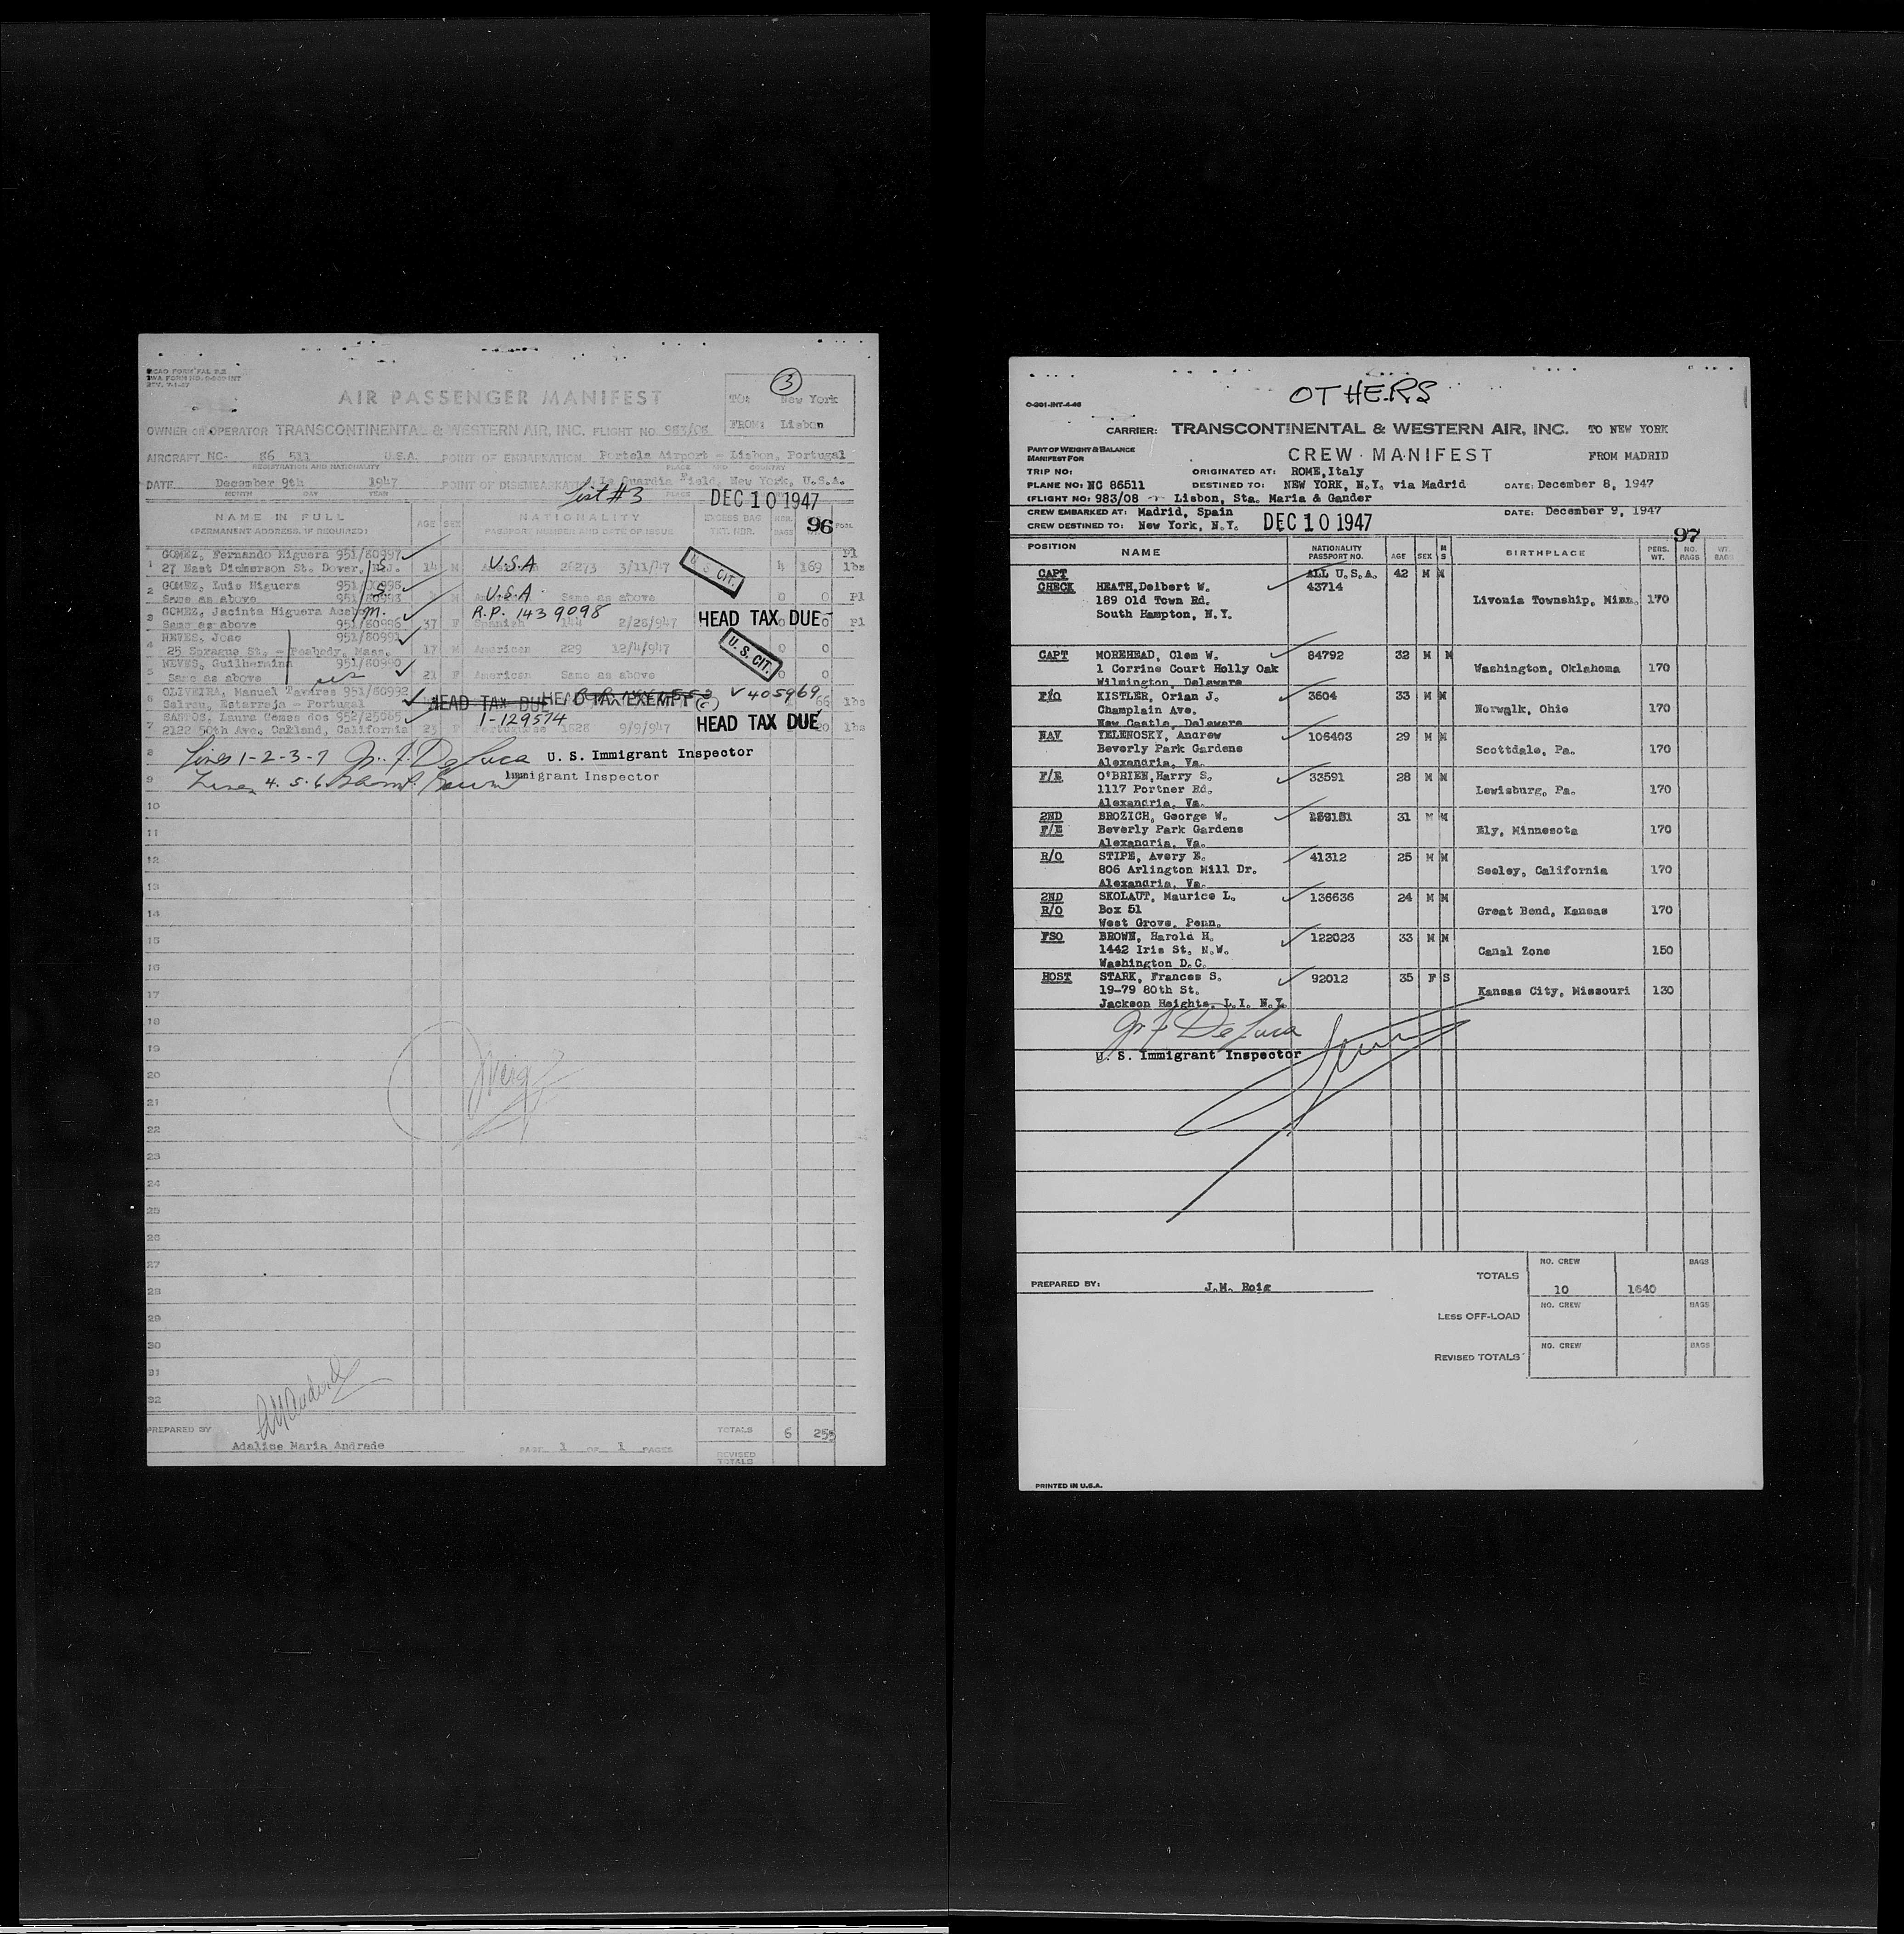 ICAO FORM PAL R.2
REV. 7-1-47
3
AIR PASSENGER MANIFEST
TO: New York
FROM: Lisbon
OWNER OR OPERATOR TRANSCONTINENTAL & WESTERN AIR, INC. FLIGHT NO. 983/08
AIRCRAFT NC- 86 511 U.S.A. POINT OF EMBARKATION Portela Airport - Lisbon, Portugal
REGISTRATION AND NATIONALITY PLACE AND COUNTRY
DATE December 9th 1947 POINT OF DISEMBARKATION La Guardia Field, New York, U.S.A.
MONTH DAY YEAR PLACE
List #3 DEC 10 1947
NAME IN FULL AGE SEX NATIONALITY EXCESS BAG NBR. 96
(PERMANENT ADDRESS, IF REQUIRED) PASSPORT NUMBER AND DATE OF ISSUE TKT. NBR. BAGS
GOMEZ, Fernando Higuera 951/80997 Pl
1 27 East Dickerson St. Dover, N.J. S 14 M U.S.A 26273 3/11/47 U. S. CIT. 4 169 lbs
2 GOMEZ, Luis Higuera S U.S.A.
Same as above M Same as above 0 0 Pl
3 GOMEZ, Jacinta Higuera m. R.P. 1439098
Same as above 951/80996 37 F Spanish 144 2/26/947 HEAD TAX DUE 0 Pl
NEVES, Joao 951/80991
4 25 Sprague St. - Peabody, Mass. 17 M American 229 12/4/947 U. S. CIT. 0 0
NEVES, Guilhermina 951/80990
5 Same as above 21 F American Same as above 0 0
6 OLIVEIRA, Manuel Tavares 951/80992 HEAD TAX DUE HEAD TAX EXEMPT (c) V 405969
Salreu, Estarreja - Portugal 66 lbs
SANTOS, Laura Gomes dos 952/25065 1-129574
7 2122 50th Ave. Oakland, California 25 F Portuguese 1628 9/9/947 HEAD TAX DUE 20 lbs
8 Lines 1-2-3-7 Jr. F. De Luca U. S. Immigrant Inspector
9 Lines 4. 5. 6 Immigrant Inspector
10
11
12
13
14
15
16
17
18
19
20
21
22
23
24
25
26
27
28
29
30
31
32
PREPARED BY
Adalice Maria Andrade PAGE 1 OF 1 PAGES
TOTALS 6 255
REVISED TOTALS
OTHERS
O-201-INT-4-46
CARRIER: TRANSCONTINENTAL & WESTERN AIR, INC. TO NEW YORK
PART OF WEIGHT & BALANCE
MANIFEST FOR
CREW MANIFEST FROM MADRID
TRIP NO: ORIGINATED AT: ROME, Italy
PLANE NO: NC 86511 DESTINED TO: NEW YORK, N.Y. via Madrid DATE: December 8, 1947
(FLIGHT NO: 983/08 Lisbon, Sta. Maria & Gander
CREW EMBARKED AT: Madrid, Spain DATE: December 9, 1947
CREW DESTINED TO: New York, N.Y. DEC 10 1947
97
POSITION NAME NATIONALITY PASSPORT NO. AGE SEX M S BIRTHPLACE PERS. WT. NO. BAGS WT. BAGS
CAPT ALL U.S.A. 42 M M
CHECK HEATH, Delbert W. 43714
189 Old Town Rd. Livonia Township, Minn. 170
South Hampton, N.Y.
CAPT MOREHEAD, Clem W. 84792 32 M M
1 Corrine Court Holly Oak Washington, Oklahoma 170
Wilmington, Delaware
F/O KISTLER, Orian J. 3604 33 M M
Champlain Ave. Norwalk, Ohio 170
New Castle, Delaware
NAV YELENOSKY, Andrew 106403 29 M M
Beverly Park Gardens Scottdale, Pa. 170
Alexandria, Va.
F/E O'BRIEN, Harry S. 33591 28 M M
1117 Portner Rd. Lewisburg, Pa. 170
Alexandria, Va.
2ND BROZICH, George W. 31 M M
F/E Beverly Park Gardens Ely, Minnesota 170
Alexandria, Va.
R/O STIPE, Avery E. 41312 25 M M
806 Arlington Mill Dr. Seeley, California 170
Alexandria, Va.
2ND SKOLAUT, Maurice L. 136636 24 M M
R/O Box 51 Great Bend, Kansas 170
West Grove, Penn.
FSO BROWN, Harold H. 122023 33 M M
1442 Iris St. N.W. Canal Zone 150
Washington D.C.
HOST STARK, Frances S. 92012 35 F S
19-79 80th St. Kansas City, Missouri 130
Jackson Heights, L.I. N.Y.
Jr F De Luca
U. S. Immigrant Inspector
PREPARED BY: J.M. Roig
TOTALS NO. CREW 10 1640 BAGS
LESS OFF-LOAD NO. CREW BAGS
REVISED TOTALS NO. CREW BAGS
PRINTED IN U.S.A.